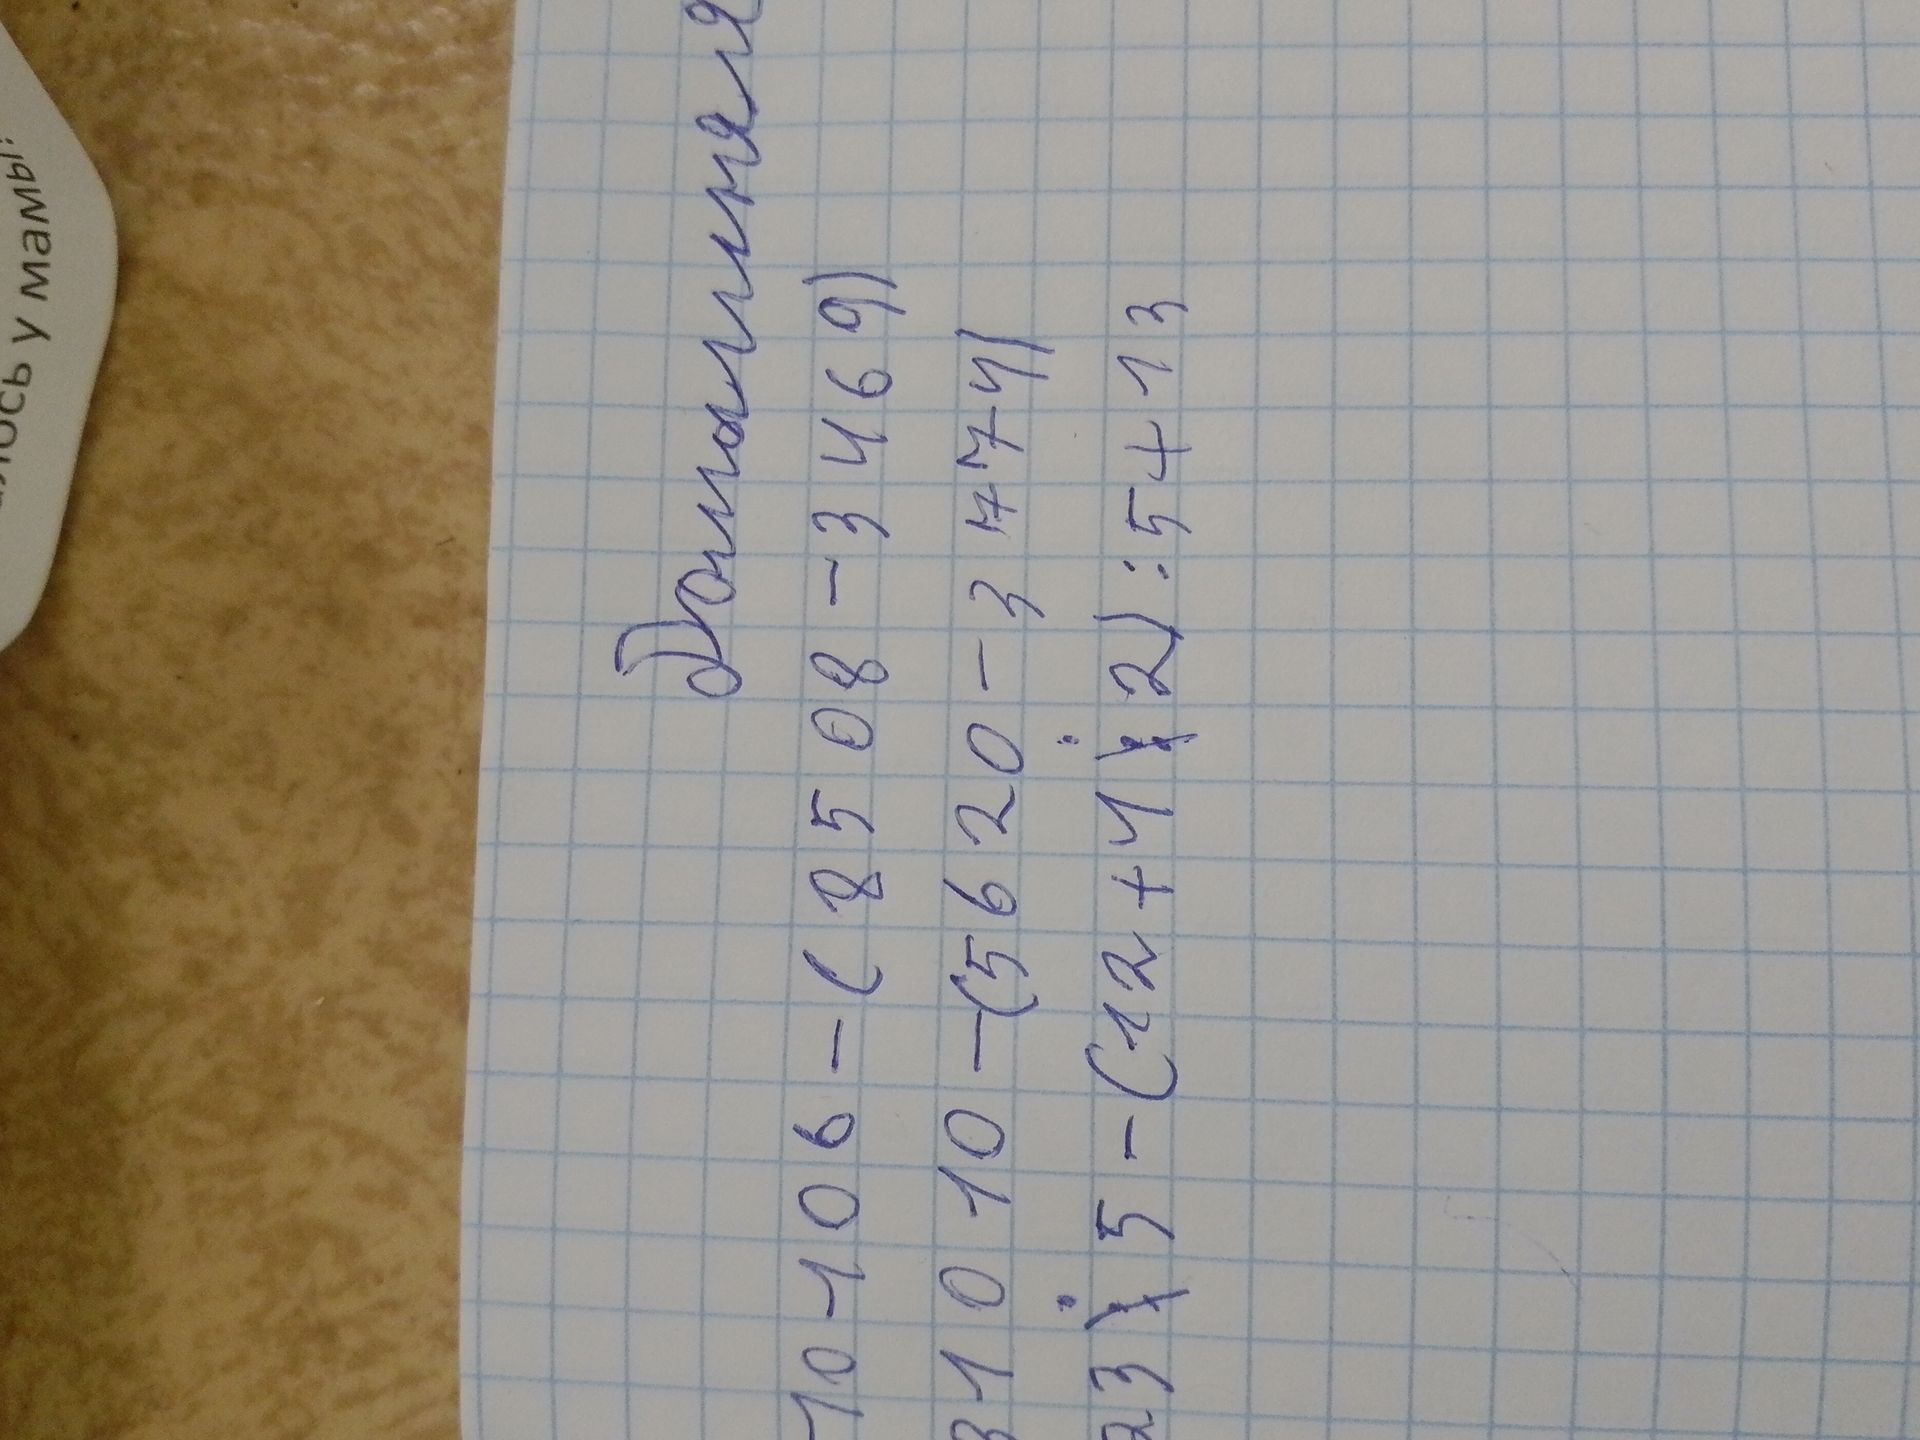 лось у мамы.
Домашняя
10-106-(8508-3469)
31010-(5620-3774)
23·5-(12+4·2):5+13